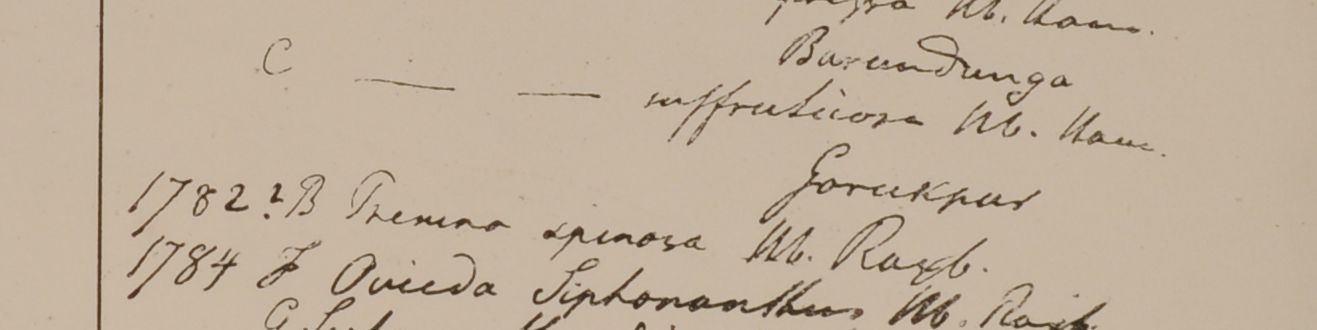 Hb. Ham.
Burundunga
C — — suffruticosa Hb. Ham.
Gorukpur
1782.2 B Premna spinosa Hb. Roxb.
1784 F Ovieda Siphonanthus Hb. Roxb.
G